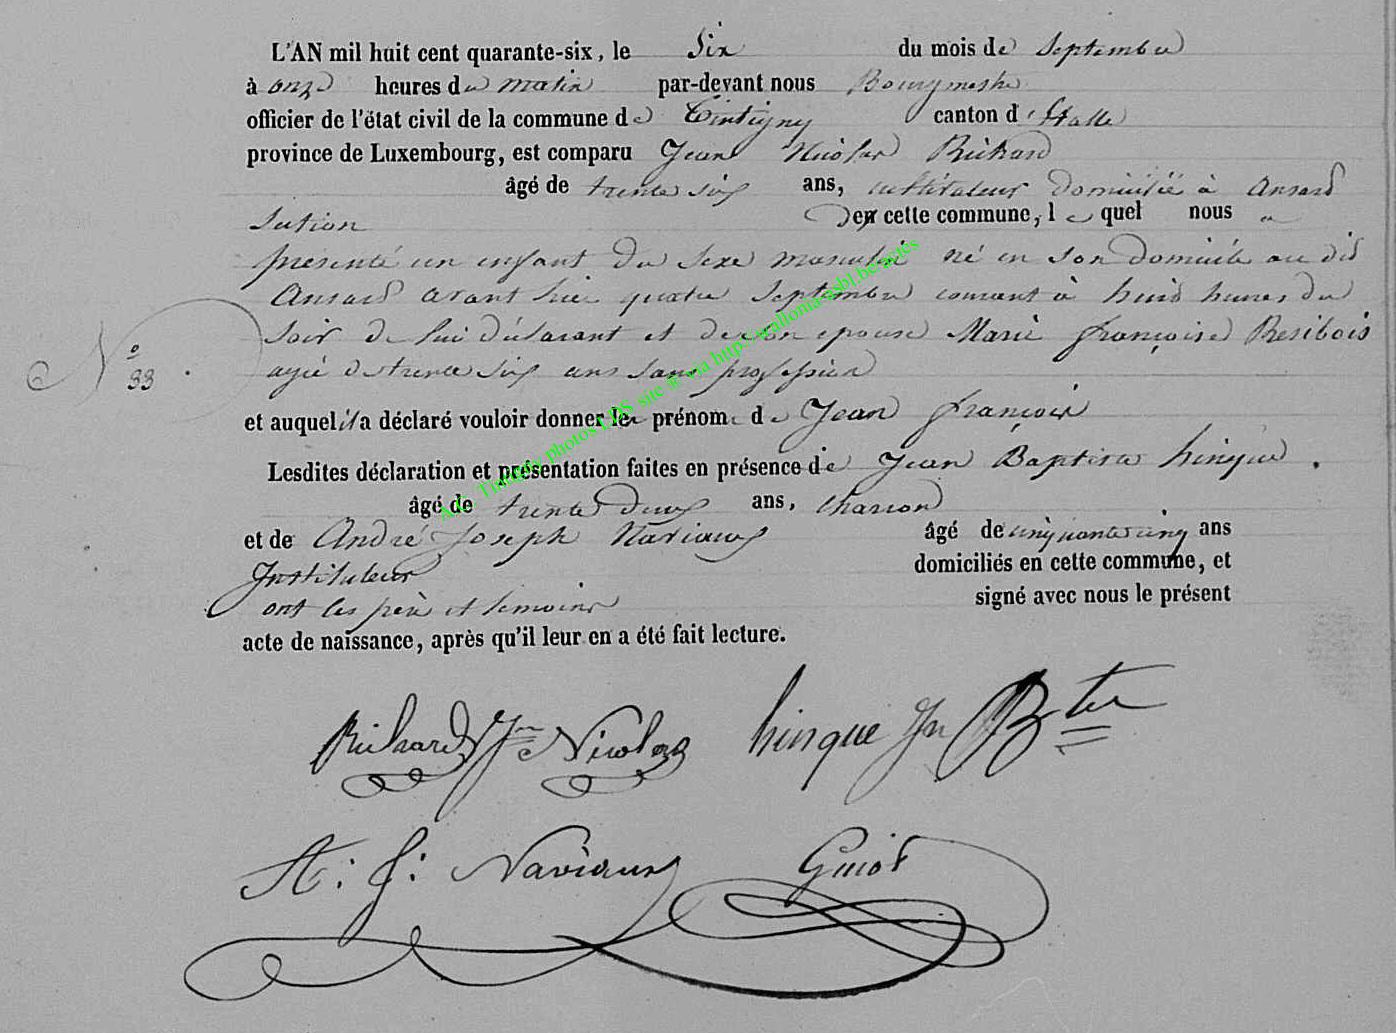 L'AN mil huit cent quarante-six, le Six du mois de Septembre
à onze heures du matin par-devant nous Bourgmestre
officier de l'état civil de la commune de Tintigny canton d'Etalle
province de Luxembourg, est comparu Jean Nicolas Richard
âgé de trente six ans, cultivateur domicilié à Ansard
Section de cette commune, lequel nous a
présenté un enfant du sexe masculin né en son domicile au dit
Ansard avant hier quatre Septembre courant à huit heures du
soir de lui déclarant et de son épouse Marie françoise Resibois
agée de trente six ans sans profession
N° 33.
et auquel il a déclaré vouloir donner le prénom de Jean françois
Lesdites déclaration et présentation faites en présence de Jean Baptiste hinque.
âgé de trente deux ans, charron
et de André Joseph Naviaux âgé de cinquante cinq ans
Instituteur domiciliés en cette commune, et
ont les père et temoins signé avec nous le présent
acte de naissance, après qu'il leur en a été fait lecture.
Richard Jn Nicolas hinque Jn Bte
A: J: Naviaux Guiot
A.C. Tintigny photos LDS site ® via http://wallonia-asbl.be/actes